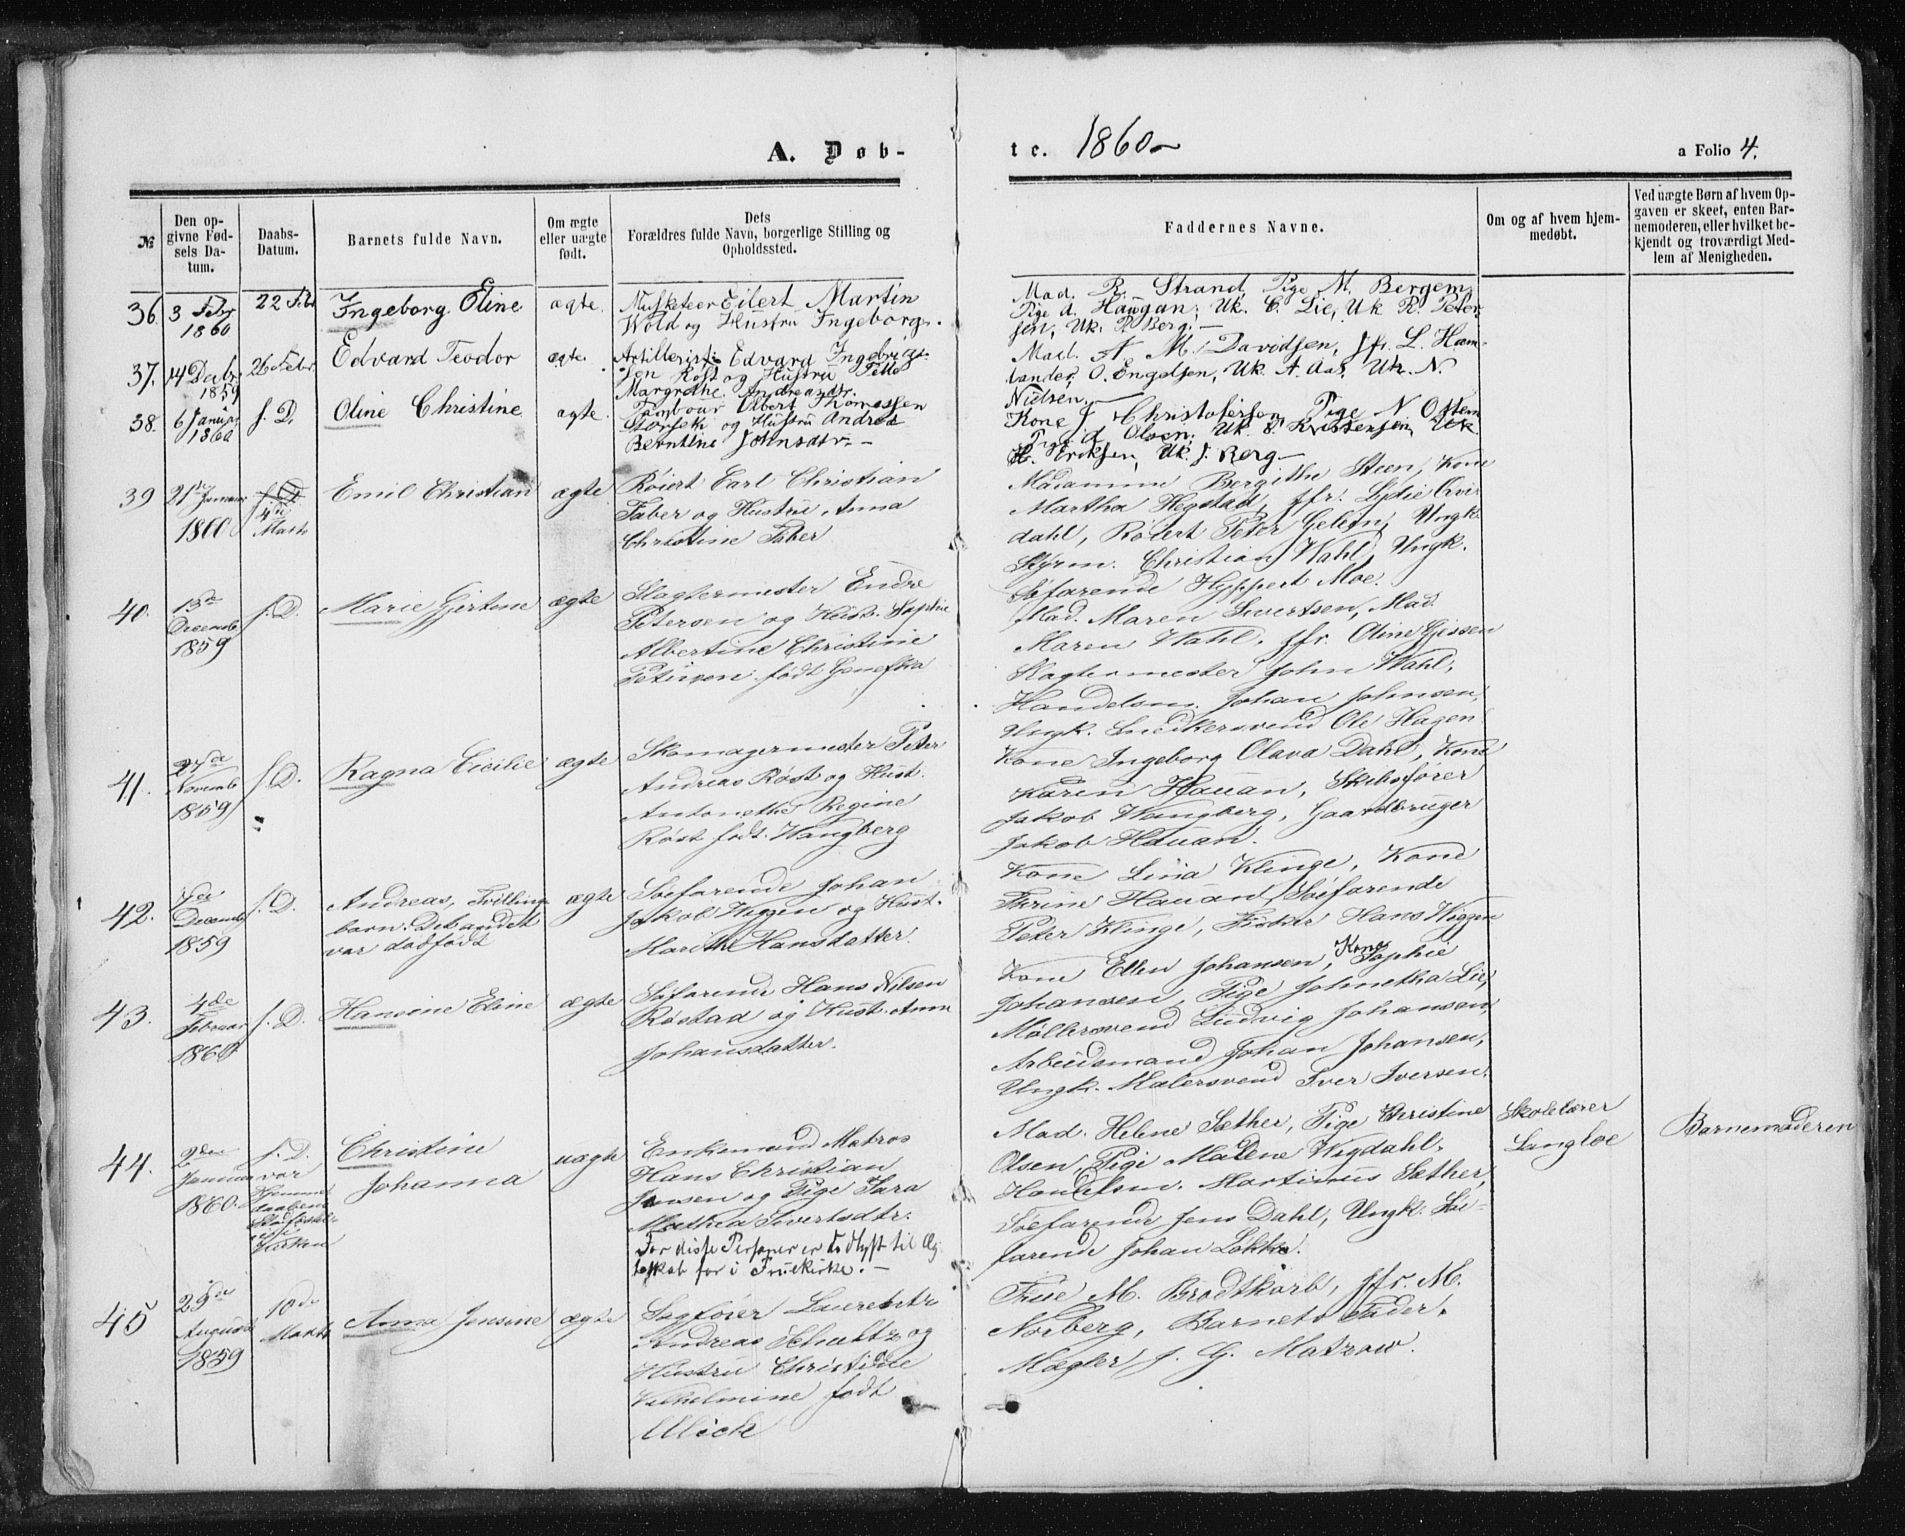 A. Døb-
te. 1860
a Folio 4.
№
Den opgivne Fødsels Datum.
Daabs-Datum.
Barnets fulde Navn.
Om ægte eller uægte født.
Dets Forældres fulde Navn, borgerlige Stilling og Opholdssted.
Faddernes Navne.
Om og af hvem hjemmedøbt.
Ved uægte Børn af hvem Opgaven er skeet, enten Barnemoderen, eller hvilket bekjendt og troværdigt Medlem af Menigheden.
36. 3 Febr 1860
22 Feb
Ingeborg Eline
ægte.
Musketeer Eilert Martin
Wold og Hustru Ingeborg
Mad. R. Strand, Pige M. Bergem
Pige d. Haugan, Uk. C. Lie, Uk R. Peter-
sen, Uk. P. Berg.
37. 14 Decbr 1859
26 Febr.
Edvard Teodor
ægte.
Artillerist Edvard Ingebrigt-
sen Røst og Hustru
Margrethe Andreasdtr.
Mad. A. M. Davidsen, Jfr. L. Ham-
lander, O. Engelsen, Uk. A. Aas, Uk. N.
Nielsen.
38. 6 Januar 1860
s. D.
Oline Christine
ægte.
Tambour Albert Thomessen
Størsek og Hustru Andrea
Berntine Johnsdtr.
Kone J. Christofersen, Pige N. Ostem
Pige d. Olsen, Uk. Kristensen, Uk.
H. Eriksen, Uk. J. Berg
39 21de Januar 1860
s. D.
4de Marts
Emil Christian
ægte
Røiert Carl Christian
Faber og Hustru Anna
Christine Faber
Madamme Bergithe Steen, Kone
Martha Hegstad, Jfr. Lydie Qvir
dahl, Røiert Peter Gelein, Ungk.
Styrm. Christian Wahl, Ungk.
Søfarende Hyppert Moe.
40. 13de Decemb. 1859
s. D.
Marie Gjertine
ægte
Slagtermester Endre
Petersen og Hust. Sophie
Albertine Christine
Petersen født
Mad. Maren Sivertsen, Mad.
Maren Wahl, Jfr. Oline Gjessen
Slagtermester John Wahl,
Handelsm. Johan Johnsen,
Ungk. Snedkersvend Ole Hagen
41. 27de Novemb 1859
s. D.
Ragna Cicilie
ægte
Skomagermester Peter
Andreas Røst og Hust.
Antonette Regine
Røst født Wangberg
Kone Ingeborg Olava Dahl, Kone
Karen Hauan, Skibsfører
Jakob Wangberg, Gaardbruger
Jakob Hauan.
42. Decemb 1859
s. D.
Andreas, Tvilling
barn. Det andet
var dødfødt
ægte
Søefarende Johan
Jakob Wiggen og Hust.
Marith Hansdatter.
Kone Lina Klinge, Kone
Thrine Hauan, Søefarende
Peter Klinge, Fisker Hans Wiggen
43. 4de Februar 1860
s. D.
Hansine Eline
ægte
Søfarende Hans Nilsen
Røstad og Hust. Anne
Johansdatter.
Kone Ellen Johansen, Kone Sophie
Johansen, Pige Johnetha Lie,
Møllersvend Ludvig Johansen,
Arbeidsmand Johan Johansen,
Ungk. Malersvend Iver Iversen.
44. 2den Januar 1860.
s. D.
var
Hjemme
daaben
Stadfæstet
i
Kirken
Christine
Johanna
uægte
Enkemand Matros
Hans Christian
Jensen og Pige Sara
Mathea Sivertsdtr.
For disse Personer er
lyst til Æg-
teskab for i Fruekirke.
Mad. Helene Sæther, Pige Christine
Olsen, Pige Malene Wigdahl,
Handelsm. Martinus Sæther,
Søefarende Jens Dahl, Ungk. Søe-
farende Johan Løkke.
Skolelærer
Langloe
Barnemoderen
45 29de August 1859
10de Marts
Anna Jensine
ægte
Sagfører Laurentz
Andreas Schultz og
Hustru Christine
Vilhelmine født
Ulick
Frue M. Brodtkorb, Jfr. M.
Norberg, Barnets Fader,
Mægler J. G. Matzow.